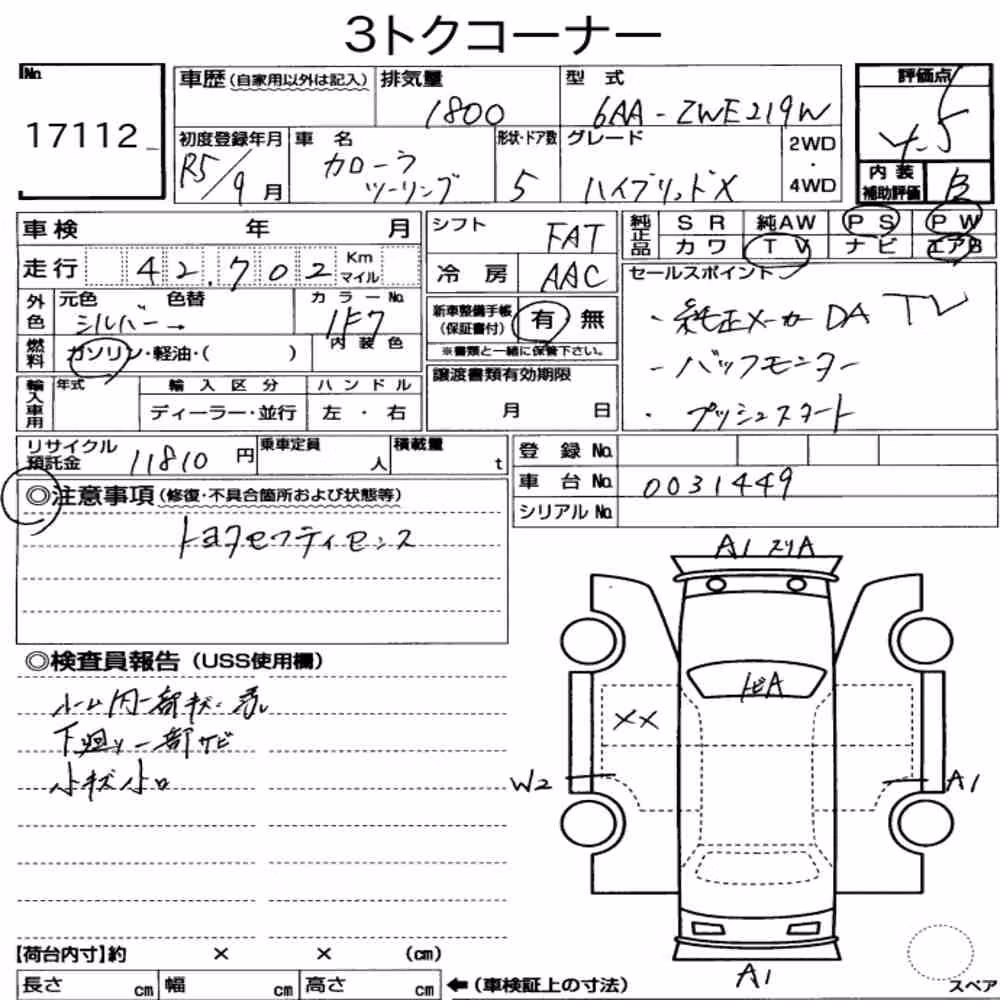 3トクコーナー
No.
17112
車歴（自家用以外は記入）
排気量
1800
型式
6AA-ZWE219W
評価点
4.5
初度登録年月
R5/9月
車名
カローラ
ツーリング
形状・ドア数
5
グレード
ハイブリッドX
2WD
・
4WD
内装
補助評価
B
車検 年 月
走行 42,702 Km
マイル
外色
元色 色替
シルバー →
カラーNo.
1F7
燃料
ガソリン・軽油・（ ）
内装色
輸入車用
年式
輸入区分
ディーラー・並行
ハンドル
左・右
シフト
FAT
冷房
AAC
新車整備手帳
（保証書付）
有 無
※書類と一緒に保管下さい。
譲渡書類有効期限
月 日
純正品
SR 純AW PS PW
カワ TV ナビ エアB
セールスポイント
・純正メーカーDA TV
・バックモニター
・プッシュスタート
リサイクル
預託金 11810 円
乗車定員
人
積載量
t
登録No.
車台No. 0031449
シリアルNo.
◎注意事項（修復・不具合箇所および状態等）
トヨタセフティセンス
◎検査員報告（USS使用欄）
ルーム内一部キズ・汚れ
下廻り一部サビ
小キズ小凹
A1 スリA
トビA
××
W2
A1
A1
スペア
【荷台内寸】約 × × （cm）
長さ cm 幅 cm 高さ cm ←（車検証上の寸法）